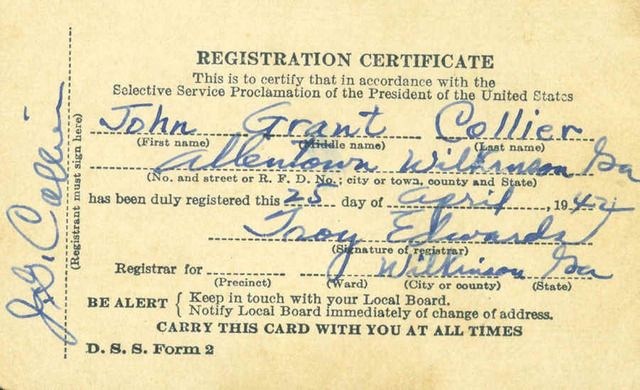 REGISTRATION CERTIFICATE
This is to certify that in accordance with the
Selective Service Proclamation of the President of the United States
John Grant Collier
(First name) (Middle name) (Last name)
Allentown Wilkinson Ga
(No. and street or R. F. D. No.; city or town, county and State)
has been duly registered this 25 day of April, 1942
Troy Edwards
(Signature of registrar)
Registrar for Wilkinson Ga
(Precinct) (Ward) (City or county) (State)
BE ALERT { Keep in touch with your Local Board.
Notify Local Board immediately of change of address.
CARRY THIS CARD WITH YOU AT ALL TIMES
D. S. S. Form 2
J. G. Collier
(Registrant must sign here)